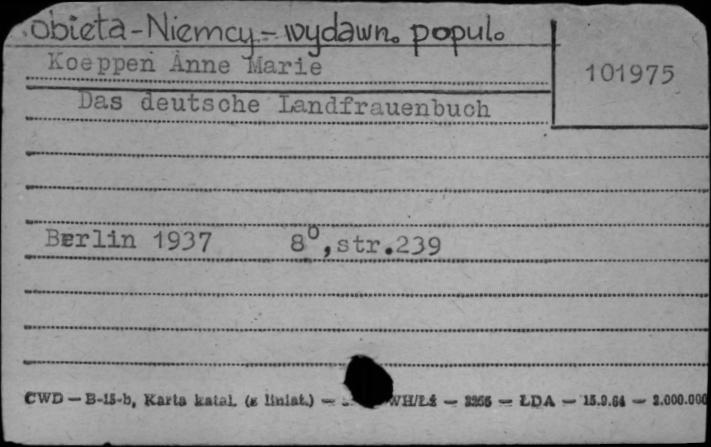 obieta-Niemcy-wydawn. popul.
Koeppen Anne Marie
101975
Das deutsche Landfrauenbuch
Berlin 1937 8⁰, str.239
CWD — B-15-b, Karta katal. (z liniat.) — WH/Łś — 2255 — ŁDA — 15.9.64 — 2.000.000